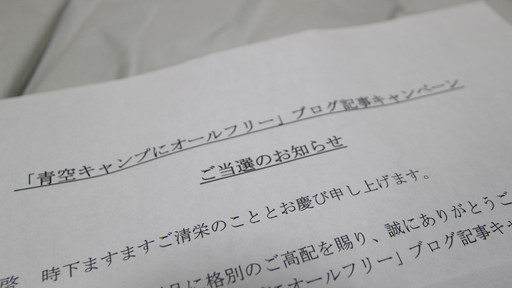 「青空キャンプにオールフリー」ブログ記事キャンペーン
ご当選のお知らせ
啓　時下ますますご清栄のこととお慶び申し上げます。
に格別のご高配を賜り、誠にありがとうご
にオールフリー」ブログ記事キャ